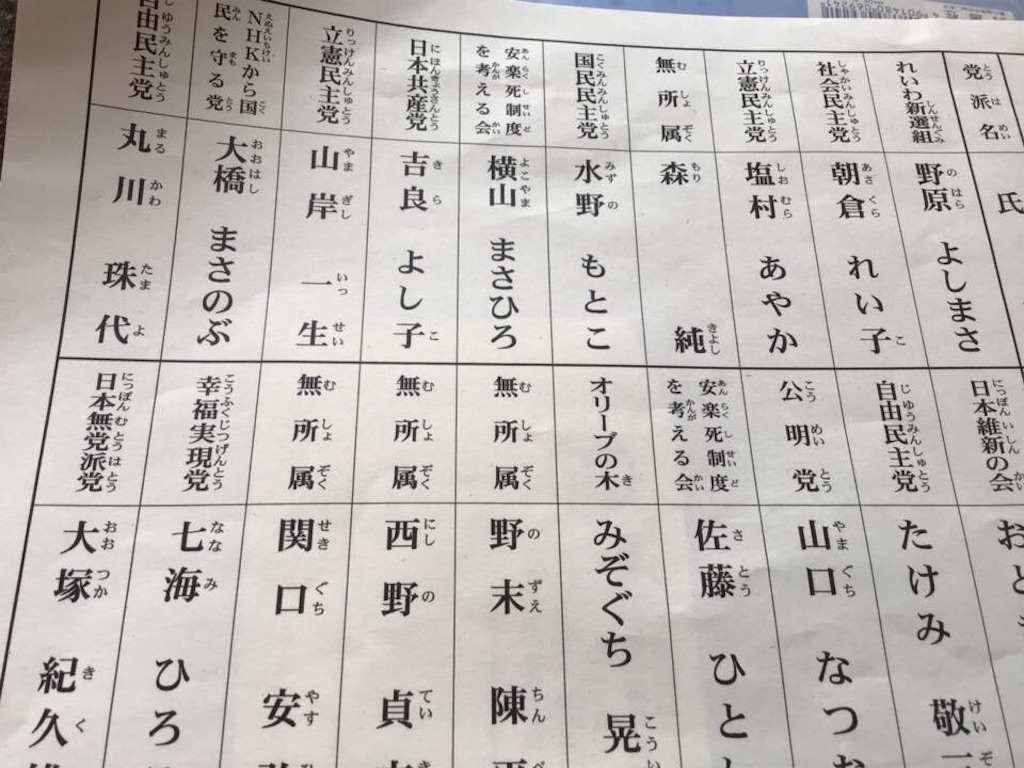 党派名
氏
れいわ新選組
野原 よしまさ
社会民主党
朝倉 れい子
立憲民主党
塩村 あやか
無所属
森 純
国民民主党
水野 もとこ
安楽死制度
を考える会
横山 まさひろ
日本共産党
吉良 よし子
立憲民主党
山岸 一生
NHKから国
民を守る党
大橋 まさのぶ
自由民主党
丸川 珠代
日本維新の会
おと
自由民主党
たけみ 敬
公明党
山口 なつ
安楽死制度
を考える会
佐藤 ひと
オリーブの木
みぞぐち 晃
無所属
野末 陳
無所属
西野 貞
無所属
関口 安
幸福実現党
七海 ひろ
日本無党派党
大塚 紀久